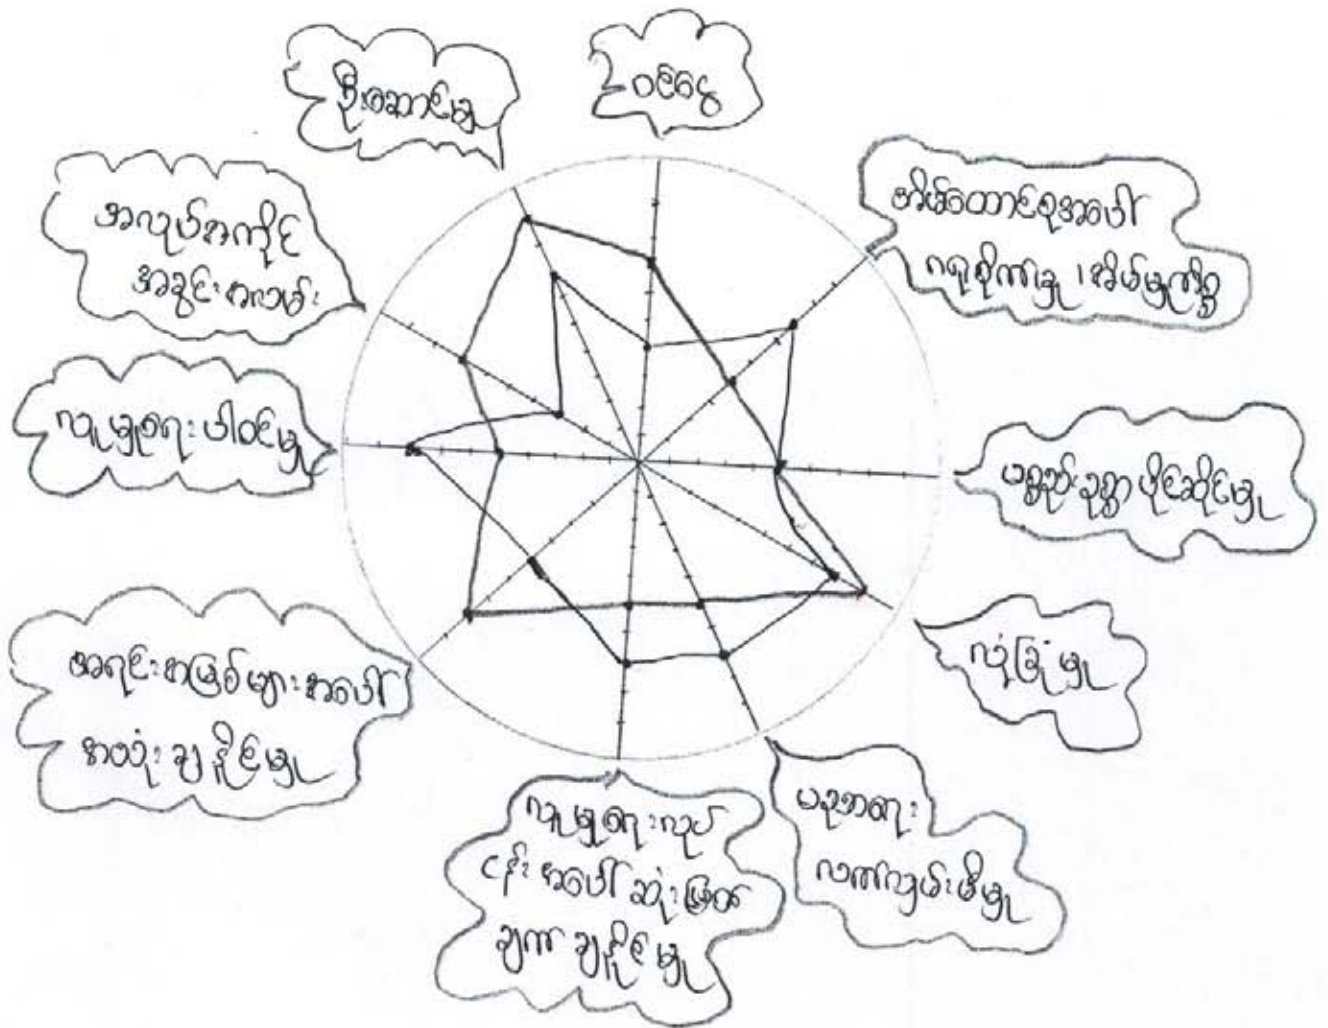 ဦးဆောင်မှု
ဝင်ငွေ
အိမ်ထောင်စုအပေါ်
ဂရုစိုက်မှု ၊ အိမ်မှုကိစ္စ
ပစ္စည်းဥစ္စာ ပိုင်ဆိုင်မှု
လုံခြုံမှု
ပညာရေး
လက်လှမ်းမီမှု
လူမှုရေးလုပ်
ငန်းအပေါ် ဆုံးဖြတ်
ချက် ချနိုင်မှု
အရင်းအမြစ်များအပေါ်
အသုံးချနိုင်မှု
လူမှုရေး ပါဝင်မှု
အလုပ်အကိုင်
အခွင့်အလမ်း